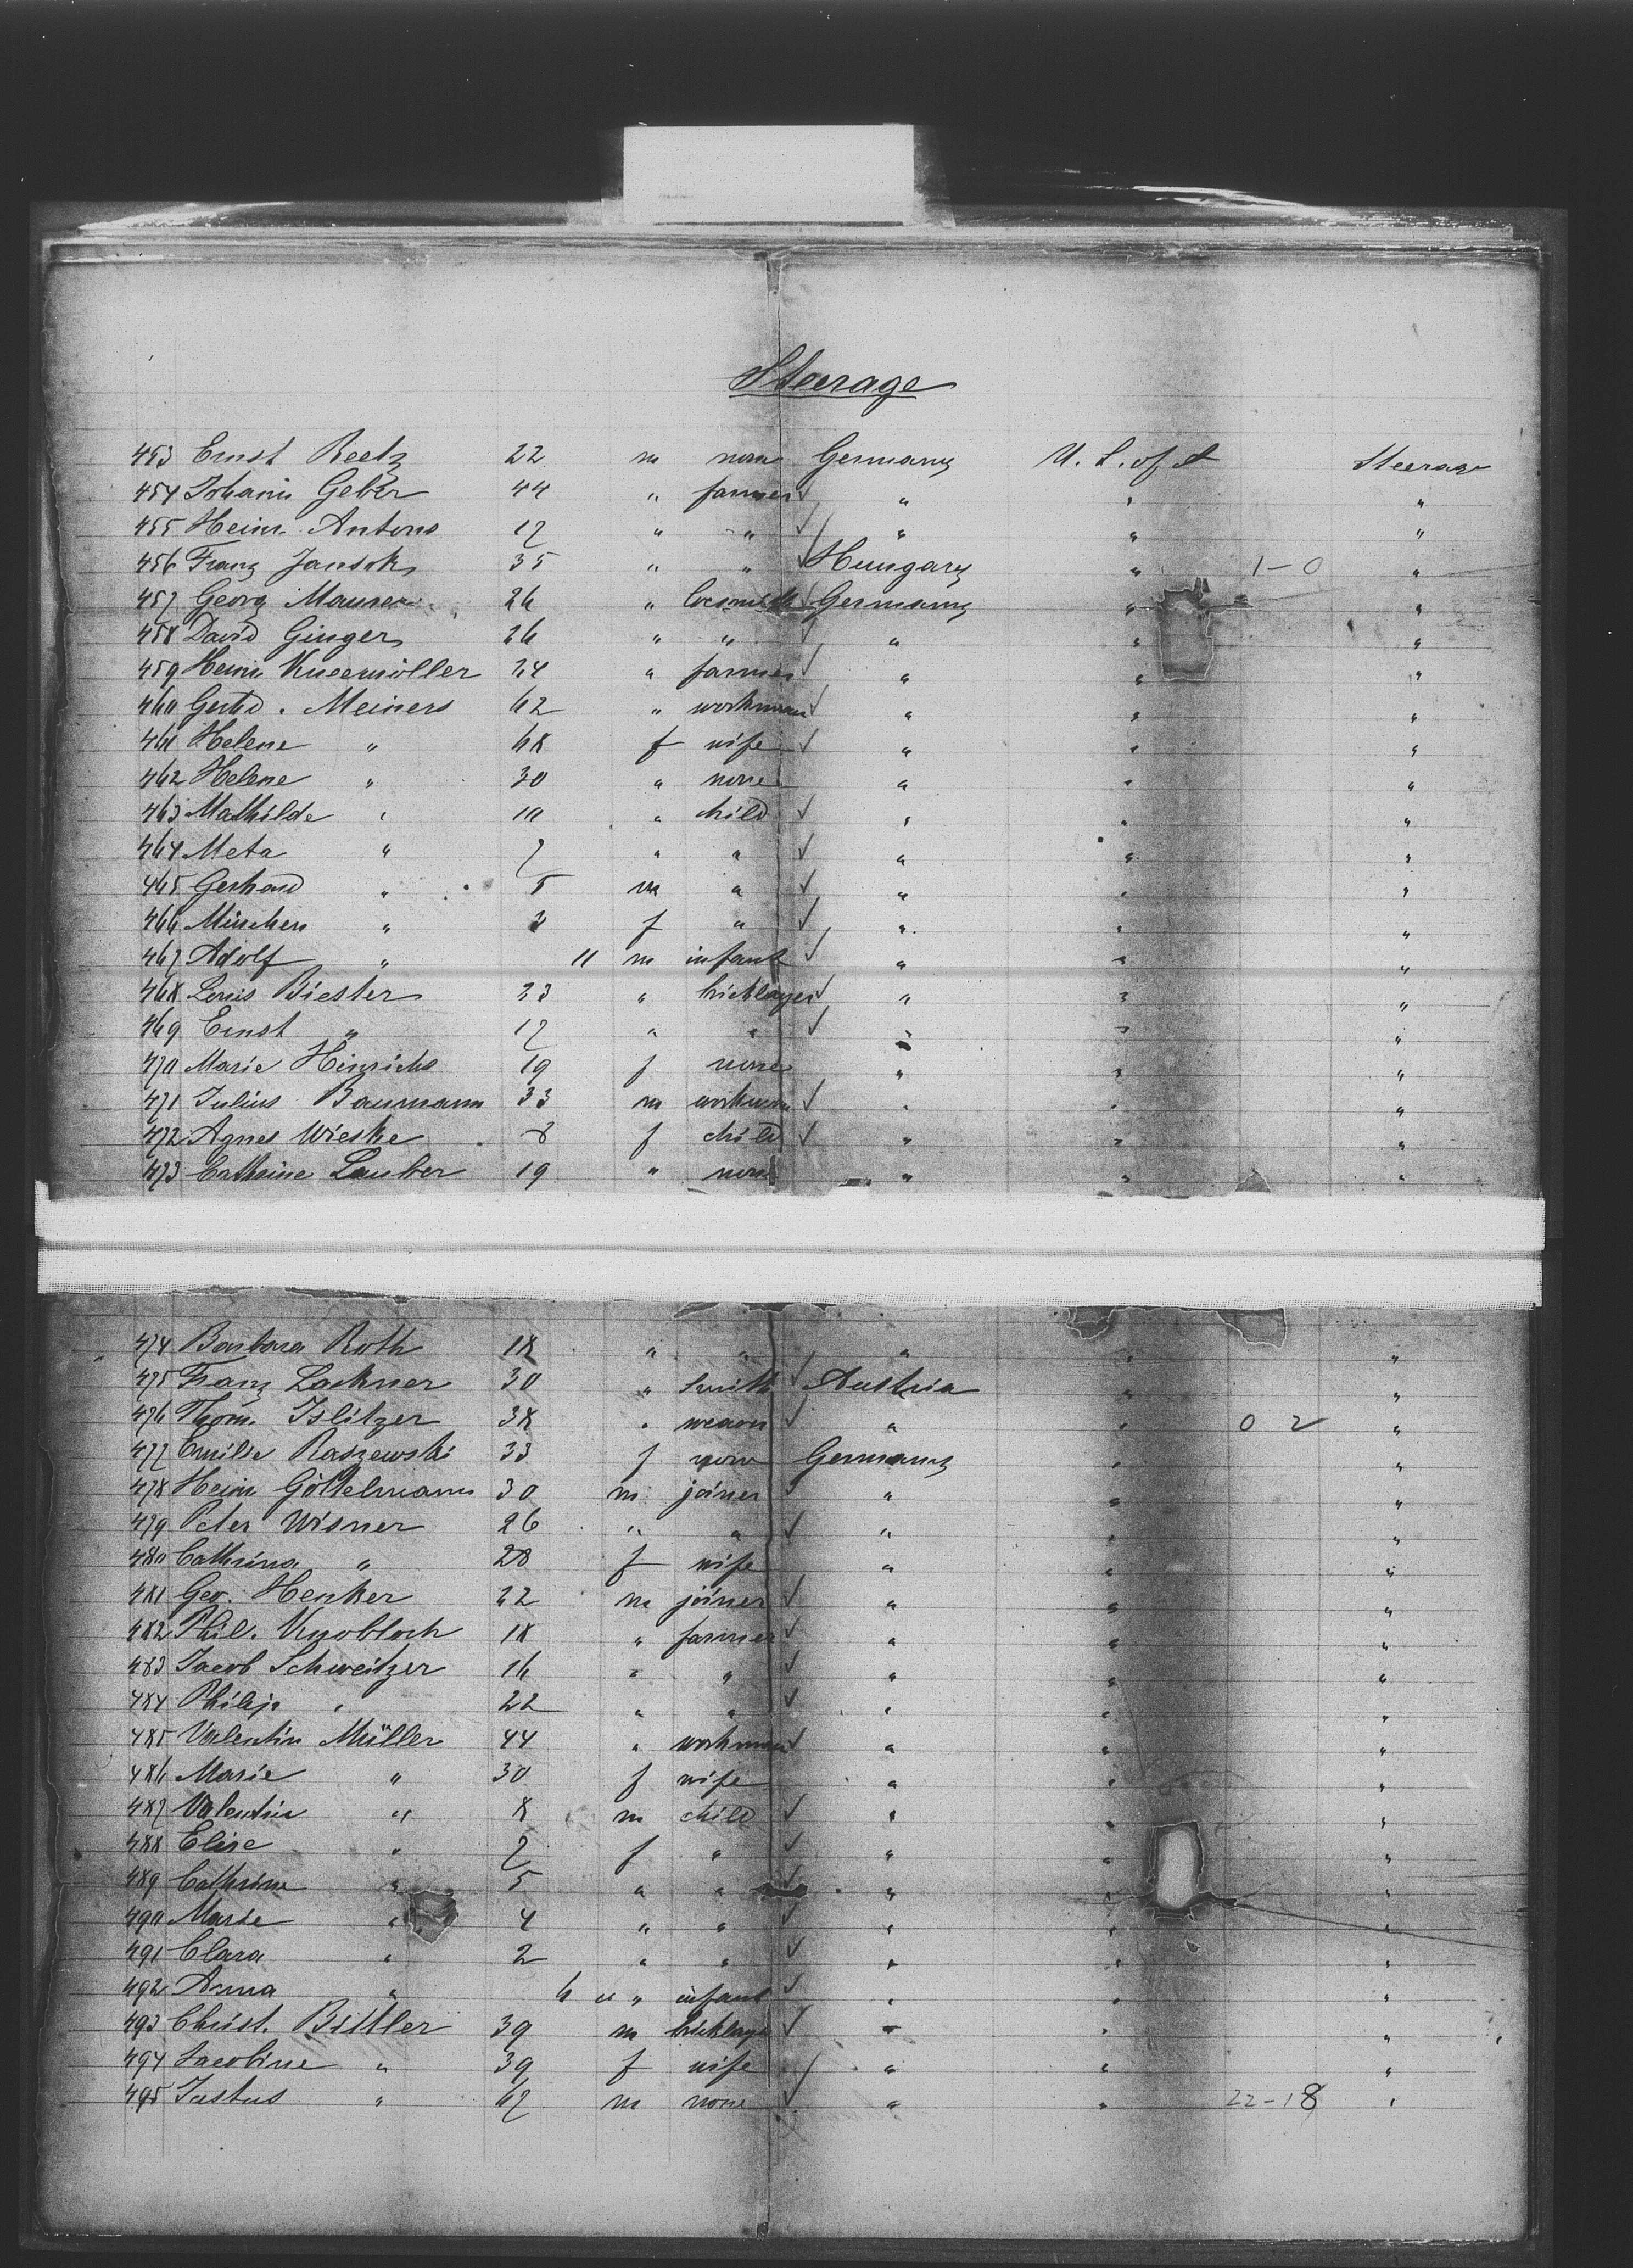 Steerage
453 Ernst Reetz 22 m none Germany U. S. of A Steerage
454 Johann Geber 44 " farmer " " "
455 Heinr. Antons 17 " " " " "
456 Franz Jansok 35 " " Hungary " 1-0 "
457 Georg Maurer 26 " locsmith Germany " "
458 David Ginger 26 " " " " "
459 Heinr Kneemöller 24 " farmer " " "
460 Gerhd. Meiners 62 " workman " " "
461 Helene " 68 f wife " " "
462 Helene " 30 " none " " "
463 Mathilde " 10 " child " " "
464 Meta " 7 " " " " "
465 Gerhard " 5 m " " " "
466 Minchen " 3 f " " " "
467 Adolf " 11 m infant " " "
468 Louis Biester 23 " bricklayer " " "
469 Ernst " 17 " " " " "
470 Marie Hinrichs 19 f none " " "
471 Julius Baumann 33 m workman " " "
472 Agnes Wieske 8 f child " " "
473 Cathrine Lauber 19 " none " " "
474 Barbara Roth 18 " " " " "
475 Franz Lackner 30 " smith Austria " "
476 Thom. Islitzer 38 " weaver " " 0 2 "
477 Emilie Raszewski 33 f none Germany " "
478 Heinr Göttelmann 30 m joiner " " "
479 Peter Wisner 26 " " " " "
480 Cathrina " 28 f wife " " "
481 Geo. Henker 22 m joiner " " "
482 Phil. Knobloch 18 " farmer " " "
483 Jacob Schweitzer 16 " " " " "
484 Philip " 22 " " " " "
485 Valentin Müller 44 " workman " " "
486 Marie " 30 f wife " " "
487 Valentin " 8 m child " " "
488 Elise " 7 f " " " "
489 Cathrine " 5 " " " " "
490 Marie " 4 " " " " "
491 Clara " 2 " " " " "
492 Anna " 6 " " infant " " "
493 Christ. Bittler 39 m bricklayer " " "
494 Jacobine " 39 f wife " " "
495 Justus " 67 m none " " 22-18 "